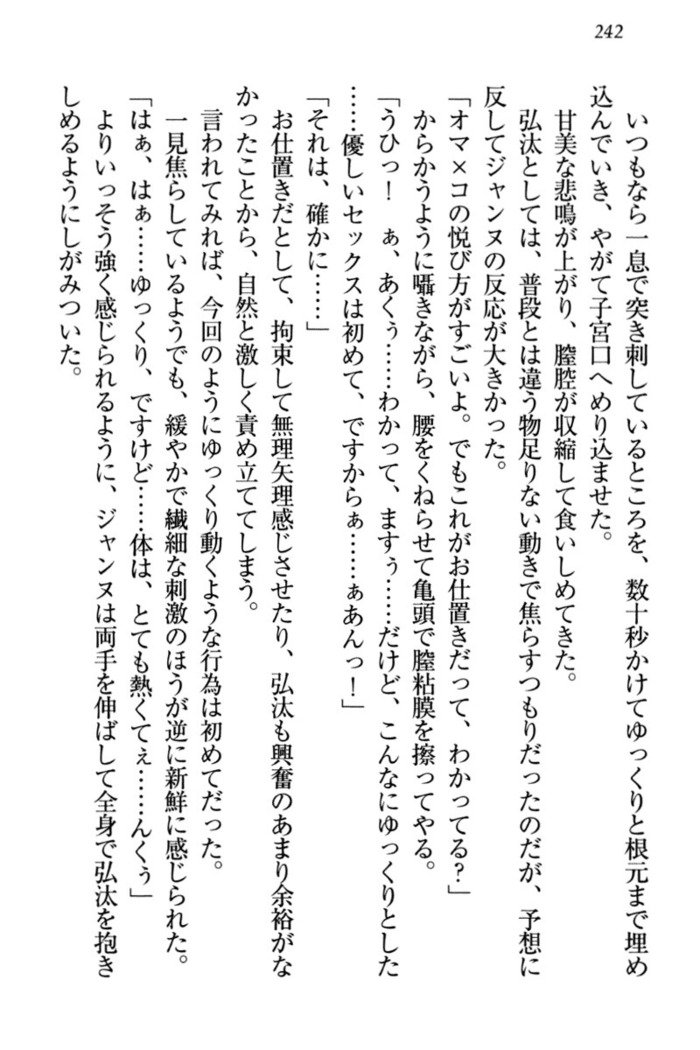 242
いつもなら一息で突き刺しているところを、数十秒かけてゆっくりと根元まで埋め
込んでいき、やがて子宮口へめり込ませた。
甘美な悲鳴が上がり、膣腔が収縮して食いしめてきた。
弘汰としては、普段とは違う物足りない動きで焦らすつもりだったのだが、予想に
反してジャンヌの反応が大きかった。
「オマ×コの悦び方がすごいよ。でもこれがお仕置きだって、わかってる?」
からかうように囁きながら、腰をくねらせて亀頭で膣粘膜を擦ってやる。
「うひっ! ぁ、あくぅ……わかって、ますぅ……だけど、こんなにゆっくりとした
……優しいセックスは初めて、ですからぁ……ぁあんっ!」
「それは、確かに……」
お仕置きだとして、拘束して無理矢理感じさせたり、弘汰も興奮のあまり余裕がな
かったことから、自然と激しく責め立ててしまう。
言われてみれば、今回のようにゆっくり動くような行為は初めてだった。
一見焦らしているようでも、緩やかで繊細な刺激のほうが逆に新鮮に感じられた。
「はぁ、はぁ……ゆっくり、ですけど……体は、とても熱くてぇ……んくぅ」
よりいっそう強く感じられるように、ジャンヌは両手を伸ばして全身で弘汰を抱き
しめるようにしがみついた。